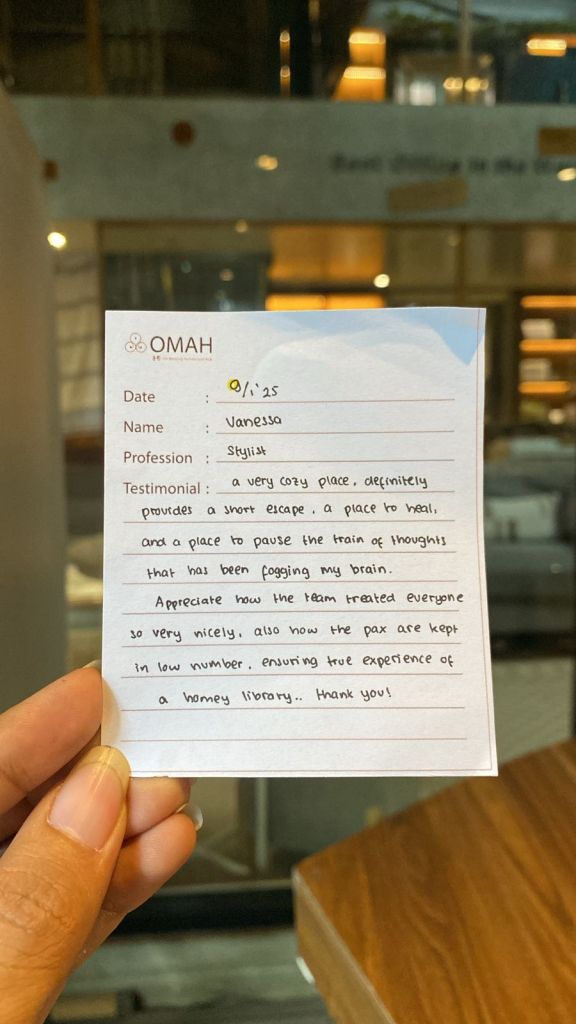 OMAH
Date : 9/1'25
Name : Vanessa
Profession : Stylist
Testimonial : a very cozy place, definitely
provides a short escape, a place to heal,
and a place to pause the train of thoughts
that has been fogging my brain.
Appreciate how the team treated everyone
so very nicely, also how the pax are kept
in low number, ensuring true experience of
a homey library.. thank you!